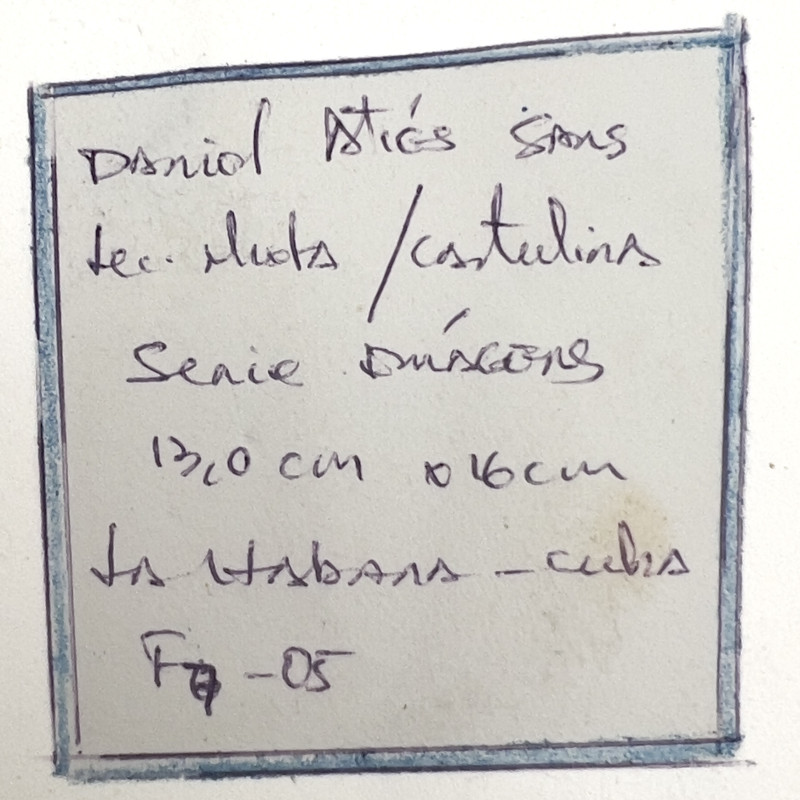 Daniel Atiés Sans
tec. Mixta / Cartulina
Serie Imágenes
13,0 cm x 16 cm
La Habana - Cuba
-05